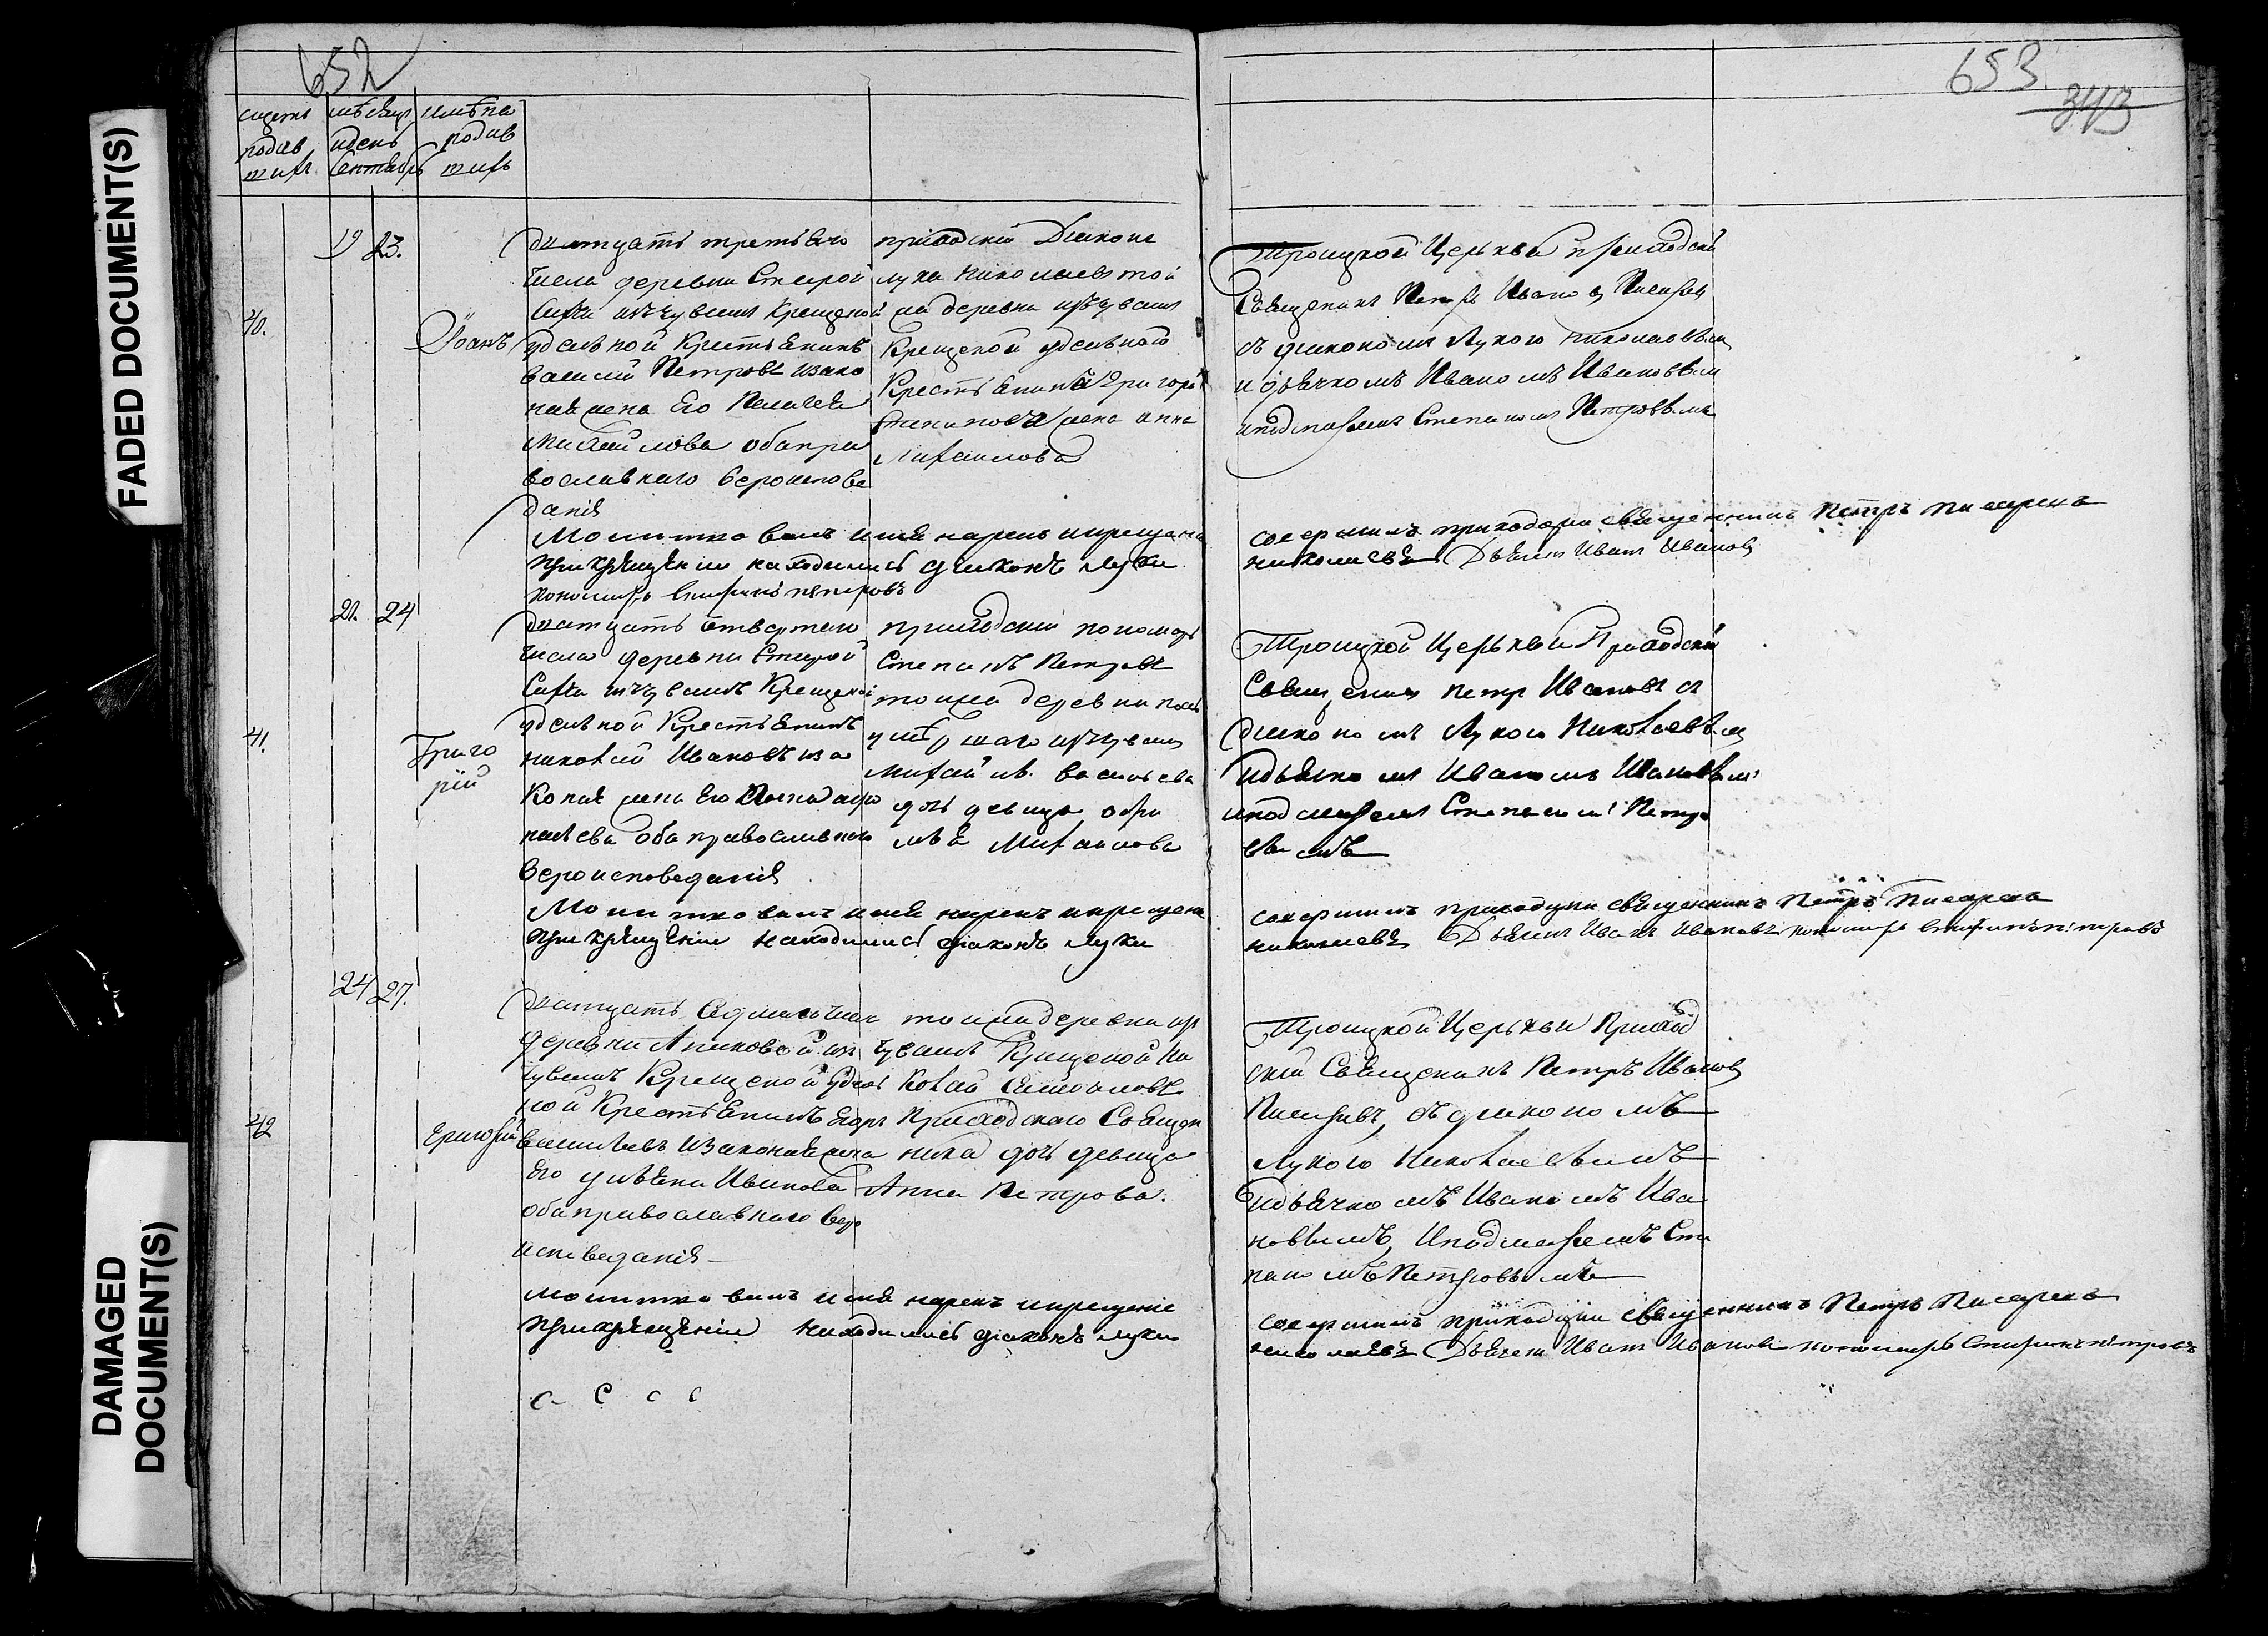 FADED DOCUMENT(S)
DAMAGED
DOCUMENT(S)
652
653
343
счетъ
родив
шихъ
мѣсяц
и день
Сентябрь
имѣна
родив
шихъ
19 23.
40.
Іоанъ
дватцать третьяго
числа деревни Старой
изчувашъ Крещеной
удельной Крестьянинъ
василий Петровъ изако
ная жена Его Пелагея
Михайлова обапра
вославнаго вероиспове
данія
приходскій Диаконъ
лука Николаевъ той
жа деревни изчувашъ
Крещеной удельнаго
Крестьянина Григорія
Степанова жена анна
Михаилова
Троицкой Церькви приходскій
Священикъ Петръ Ивановъ Писаревъ
съ диакономъ Лукою Николаевымъ
и дьячкомъ Иваномъ Ивановымъ
ипономаремъ Степаномъ Петровымъ
Молитвовалъ имя нарекъ икрещена
прикрещеніи находились диаконъ Лука
пономарь Стефанъ петровъ
совершилъ приходски священникъ Петръ Писаревъ
николаевъ Дьячекъ Иванъ Ивановъ
21. 24
41.
Григо
рій
дватцать Четвертаго
числа деревни Старой
изчувашъ Крещеной
удельной Крестьянинъ
николай Ивановъ иза
коная жена Его
обаправославнаго
вероисповеданія
приходскій пономарь
Степанъ Петровъ
тоижа деревни
изчувашъ
Михайлы васильева
дочь девица
Михаилова
Троицкой Церькви Приходскій
Священикъ Петр Ивановъ съ
диакономъ Лукою Николаевымъ
идьячкомъ Иваномъ Ивановымъ
ипономаремъ Степаномъ Петро
вымъ
Молитвовалъ имя нарекъ икрещена
прикрещеніи находились діаконъ Лука
совершилъ приходски священникъ Петръ Писаревъ
николаевъ Дьячекъ Иванъ Ивановъ пономарь Стефанъ петровъ
24 27.
42
Григорій
дватцать Седмаго числа
деревни из
чувашъ Крещеной Удель
ной Крестьянинъ Егоръ
васильевъ изаконая жена
Его Ульяна Иванова
обаправославнаго веро
исповеданія
тоижа деревни из
чувашъ Крещеной Ни
колай
Приходскаго Священ
ника дочь девица
Анна Петрова.
Троицкой Церькви Приход
ской Священикъ Петръ Ивановъ
Писаревъ, съ диакономъ
Лукою Николаевымъ
Идьячкомъ Иваномъ Ива
новымъ, Ипономаремъ Сте
паномъ Петровымъ
молитвовалъ имя нарекъ икрещеніе
прикрещеніи находились діаконъ лука
совершилъ приходски священникъ Петръ Писаревъ
николаевъ Дьячекъ Иванъ Ивановъ пономарь Стефанъ петровъ